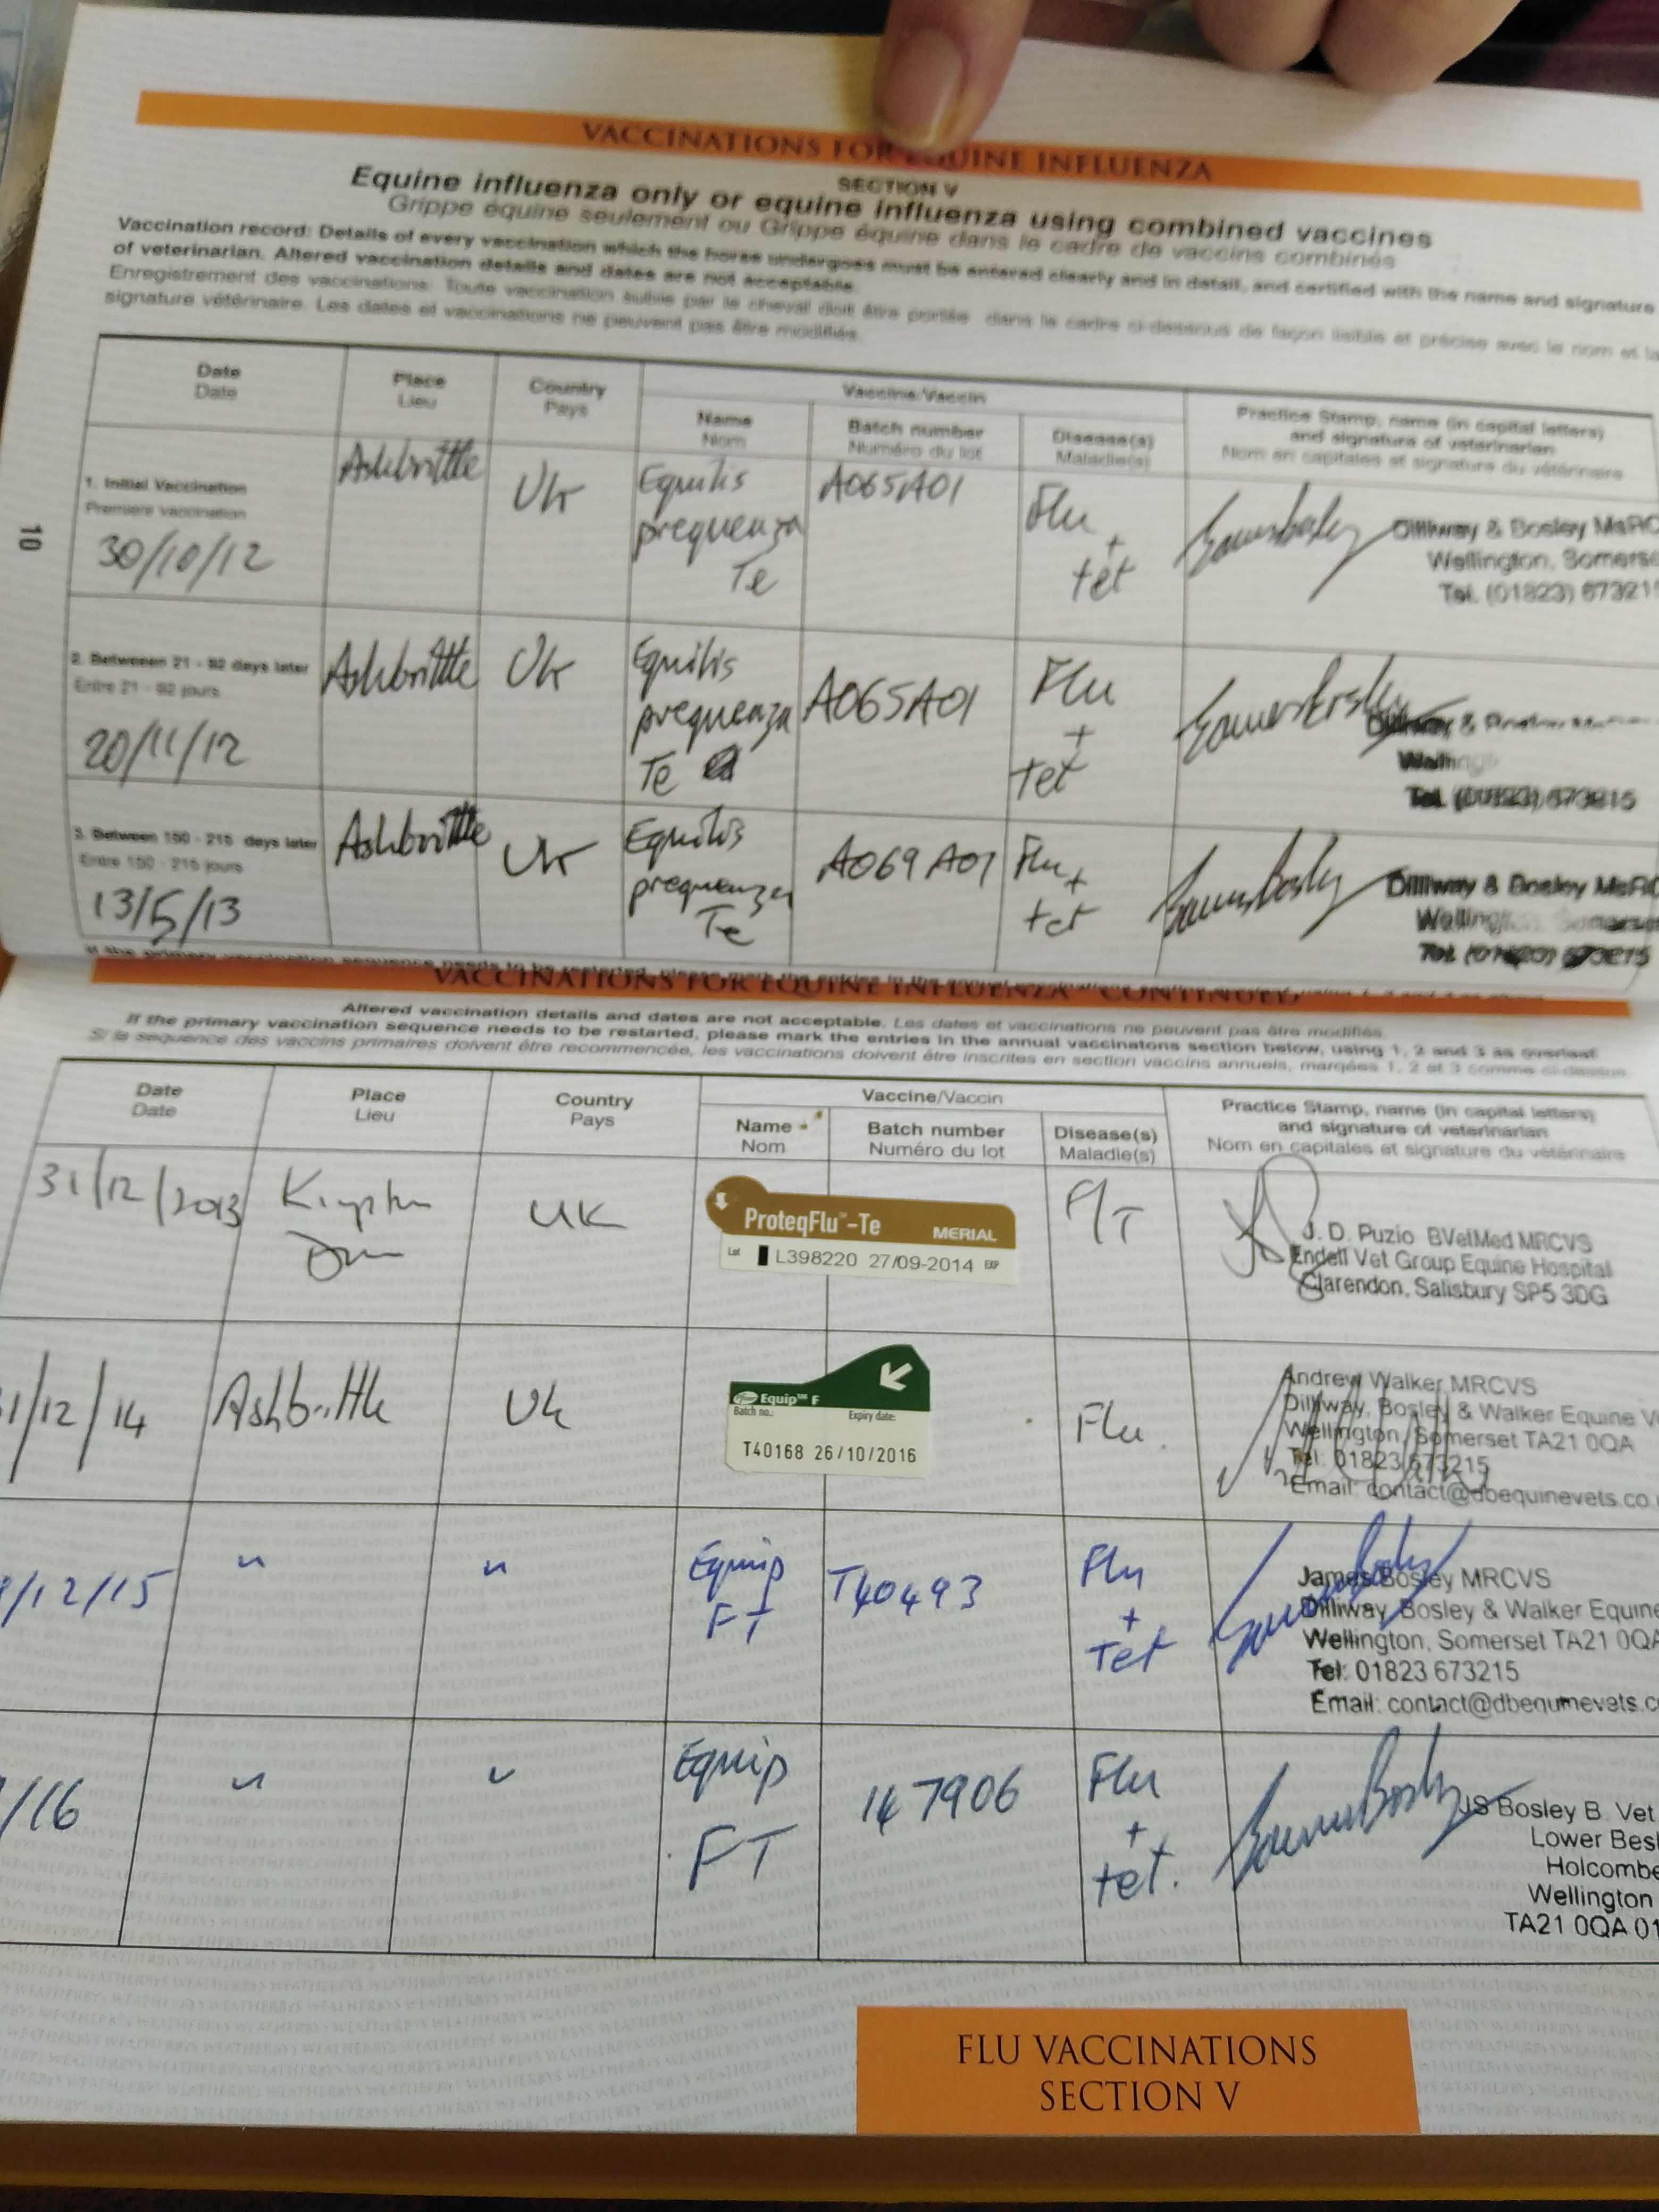 VACCINATIONS FOR EQUINE INFLUENZA
SECTION V
Equine influenza only or equine influenza using combined vaccines
Grippe équine seulement ou Grippe équine dans le cadre de vaccins combinés
Vaccination record: Details of every vaccination which the horse undergoes must be entered clearly and in detail, and certified with the name and signature
of veterinarian. Altered vaccination details and dates are not acceptable.
Enregistrement des vaccinations: Toute vaccination subie par le cheval doit être portée dans le cadre ci-dessous de façon lisible et précise avec le nom et la
signature vétérinaire. Les dates et vaccinations ne peuvent pas être modifiés.
Date
Date
Place
Lieu
Country
Pays
Vaccine/Vaccin
Name
Nom
Batch number
Numéro du lot
Disease(s)
Maladie(s)
Practice Stamp, name (in capital letters)
and signature of veterinarian
Nom en capitales et signature du vétérinaire
10
1. Initial Vaccination
Premiere vaccination
30/10/12
Ashbrittle
UK
Equilis
prequenza
Te
A065A01
Flu
+
tet
Dilliway & Bosley MsRC
Wellington, Somerse
Tel. (01823) 673215
2. Betweeen 21 - 92 days later
Entre 21 - 92 jours
20/11/12
Ashbrittle
UK
Equilis
prequenza
Te
A065A01
Flu
+
tet
Tel. (01823) 673215
3. Between 150 - 215 days later
Entre 150 - 215 jours
13/5/13
Ashbrittle
UK
Equilis
prequenza
Te
A069A01
Flu +
tet
Dilliway & Bosley MsRC
Wellington Somerse
Tel. (01823) 673215
VACCINATIONS FOR EQUINE INFLUENZA - CONTINUED
Altered vaccination details and dates are not acceptable. Les dates et vaccinations ne peuvent pas être modifiés.
If the primary vaccination sequence needs to be restarted, please mark the entries in the annual vaccinatons section below, using 1, 2 and 3 as overleaf
Si la séquence des vaccins primaires doivent être recommencée, les vaccinations doivent être inscrites en section vaccins annuels, marqées 1, 2 et 3 comme ci-dessus.
Date
Date
Place
Lieu
Country
Pays
Vaccine/Vaccin
Name
Nom
Batch number
Numéro du lot
Disease(s)
Maladie(s)
Practice Stamp, name (in capital letters)
and signature of veterinarian
Nom en capitales et signature du vétérinaire
31/12/2013
UK
ProteqFlu™-Te MERIAL
Lot L398220 27/09-2014 EXP
F/T
J. D. Puzio BVetMed MRCVS
Endell Vet Group Equine Hospital
Clarendon, Salisbury SP5 3DG
1/12/14
Ashbrittle
UK
Equip™ F
Batch no.: Expiry date:
T40168 26/10/2016
Flu
Andrew Walker MRCVS
Dilliway, Bosley & Walker Equine V
Wellington, Somerset TA21 0QA
Tel: 01823 673215
Email: contact@dbequinevets.co.
/12/15
"
"
Equip
FT
T40493
Flu
+
Tet
James Bosley MRCVS
Dilliway Bosley & Walker Equine
Wellington, Somerset TA21 0QA
Tel: 01823 673215
Email: contact@dbequinevets.c
/16
"
"
Equip
FT
147906
Flu
+
tet.
JS Bosley B. Vet
Lower Besl
Holcombe
Wellington
TA21 0QA 01
FLU VACCINATIONS
SECTION V